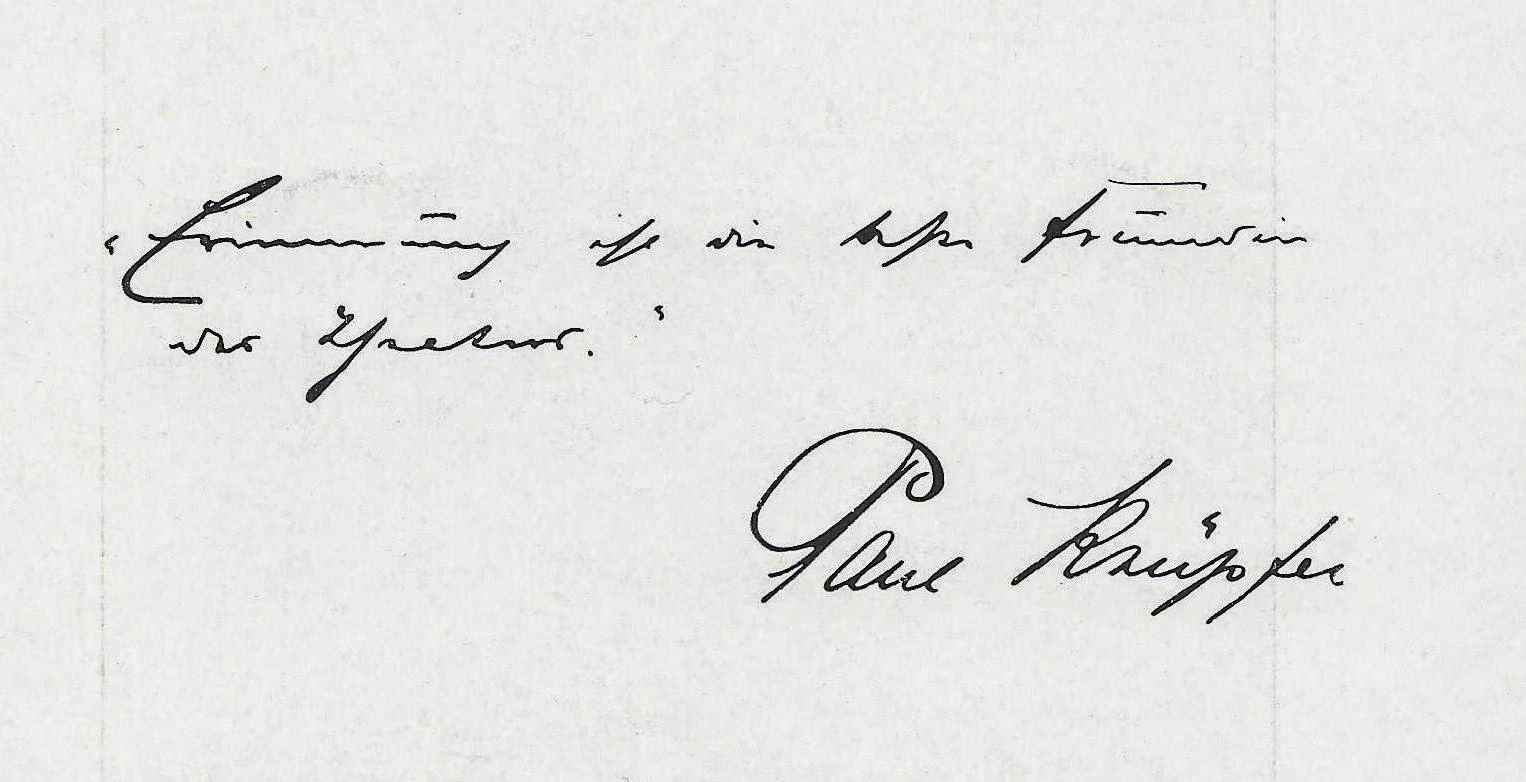 "Erinnerung ist die beste Freundin
des
Paul Knüpfer